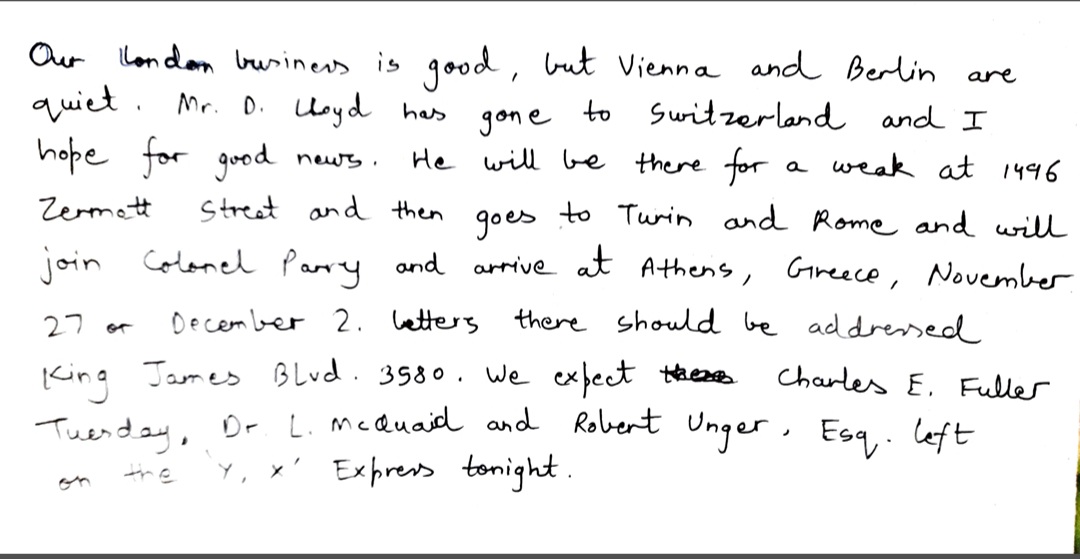 Our London business is good, but Vienna and Berlin are
quiet. Mr. D. Lloyd has gone to Switzerland and I
hope for good news. He will be there for a weak at 1496
Zermott Street and then goes to Turin and Rome and will
join Colonel Parry and arrive at Athens, Greece, November
27 or December 2. Letters there should be addressed
King James Blvd. 3580. We expect Charles E. Fuller
Tuesday, Dr L. McQuaid and Robert Unger, Esq. left
on the 'Y, X' Express tonight.